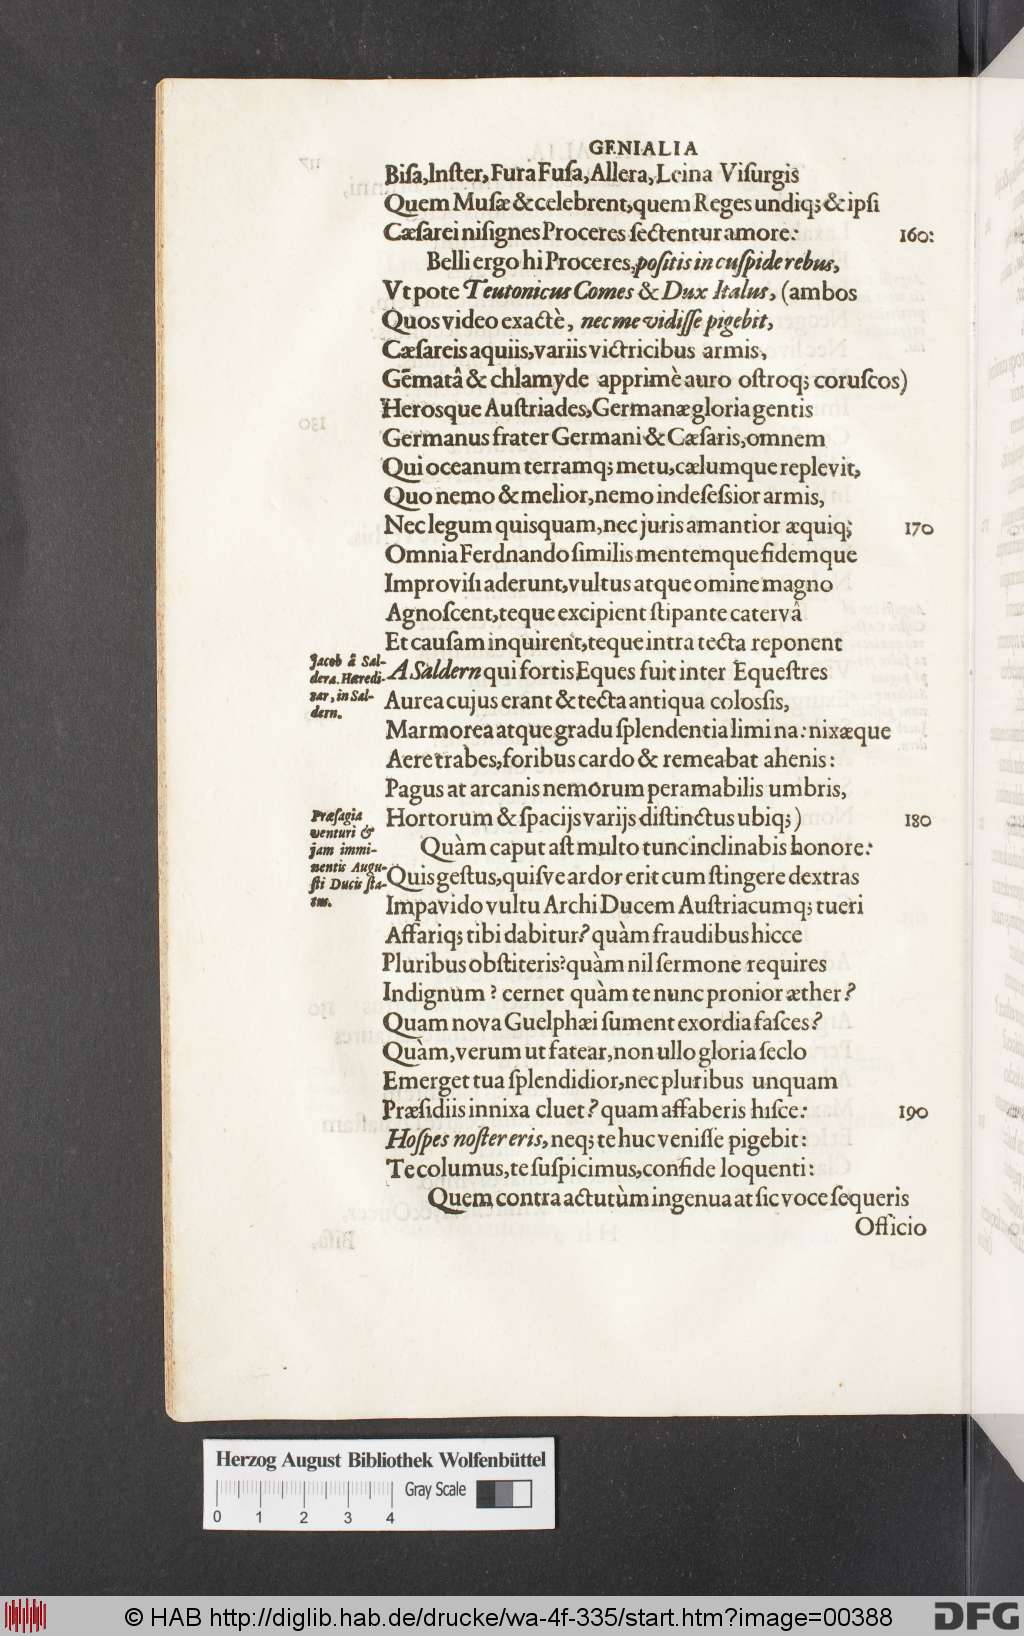 GENIALIA
Bisa, Inster, Fura Fusa, Allera, Leina Visurgis
Quem Musæ & celebrent, quem Reges undiq; & ipsi
Cæsarei nisignes Proceres sectentur amore: 160:
Belli ergo hi Proceres, positis in cuspide rebus,
Vt pote Teutonicus Comes & Dux Italus, (ambos
Quos video exactè, nec me vidisse pigebit,
Cæsareis aquiis, variis victricibus armis,
Gēmatâ & chlamyde apprimè auro ostroq; coruscos)
Herosque Austriades, Germanæ gloria gentis
Germanus frater Germani & Cæsaris, omnem
Qui oceanum terramq; metu, cælumque replevit,
Quo nemo & melior, nemo indefessior armis,
Nec legum quisquam, nec juris amantior æquiq; 170
Omnia Ferdnando similis mentemque fidemque
Improvisi aderunt, vultus atque omine magno
Agnoscent, teque excipient stipante catervâ
Et causam inquirent, teque intra tecta reponent
Jacob â Sal-
dera. Hæredi-
tar, in Sal-
dern.
A Saldern qui fortis Eques fuit inter Equestres
Aurea cujus erant & tecta antiqua colossis,
Marmorea atque gradu splendentia limina: nixæque
Aere trabes, foribus cardo & remeabat ahenis:
Pagus at arcanis nemorum peramabilis umbris,
Hortorum & spacijs varijs distinctus ubiq;) 180
Præsagia
venturi &
jam immi-
nentis Augu-
sti Ducis sta-
tus.
Quàm caput ast multo tunc inclinabis honore:
Quis gestus, quisve ardor erit cum stingere dextras
Impavido vultu ArchiDucem Austriacumq; tueri
Affariq; tibi dabitur? quàm fraudibus hicce
Pluribus obstiteris? quàm nil sermone requires
Indignum? cernet quàm te nunc pronior æther?
Quam nova Guelphæi sument exordia fasces?
Quàm, verum ut fatear, non ullo gloria seclo
Emerget tua splendidior, nec pluribus unquam
Præsidiis innixa cluet? quam affaberis hisce: 190
Hospes noster eris, neq; te huc venisse pigebit:
Te columus, te suspicimus, confide loquenti:
Quem contra actutùm ingenua at sic voce sequeris
Officio
Herzog August Bibliothek Wolfenbüttel
Gray Scale
0 1 2 3 4
© HAB http://diglib.hab.de/drucke/wa-4f-335/start.htm?image=00388
DFG